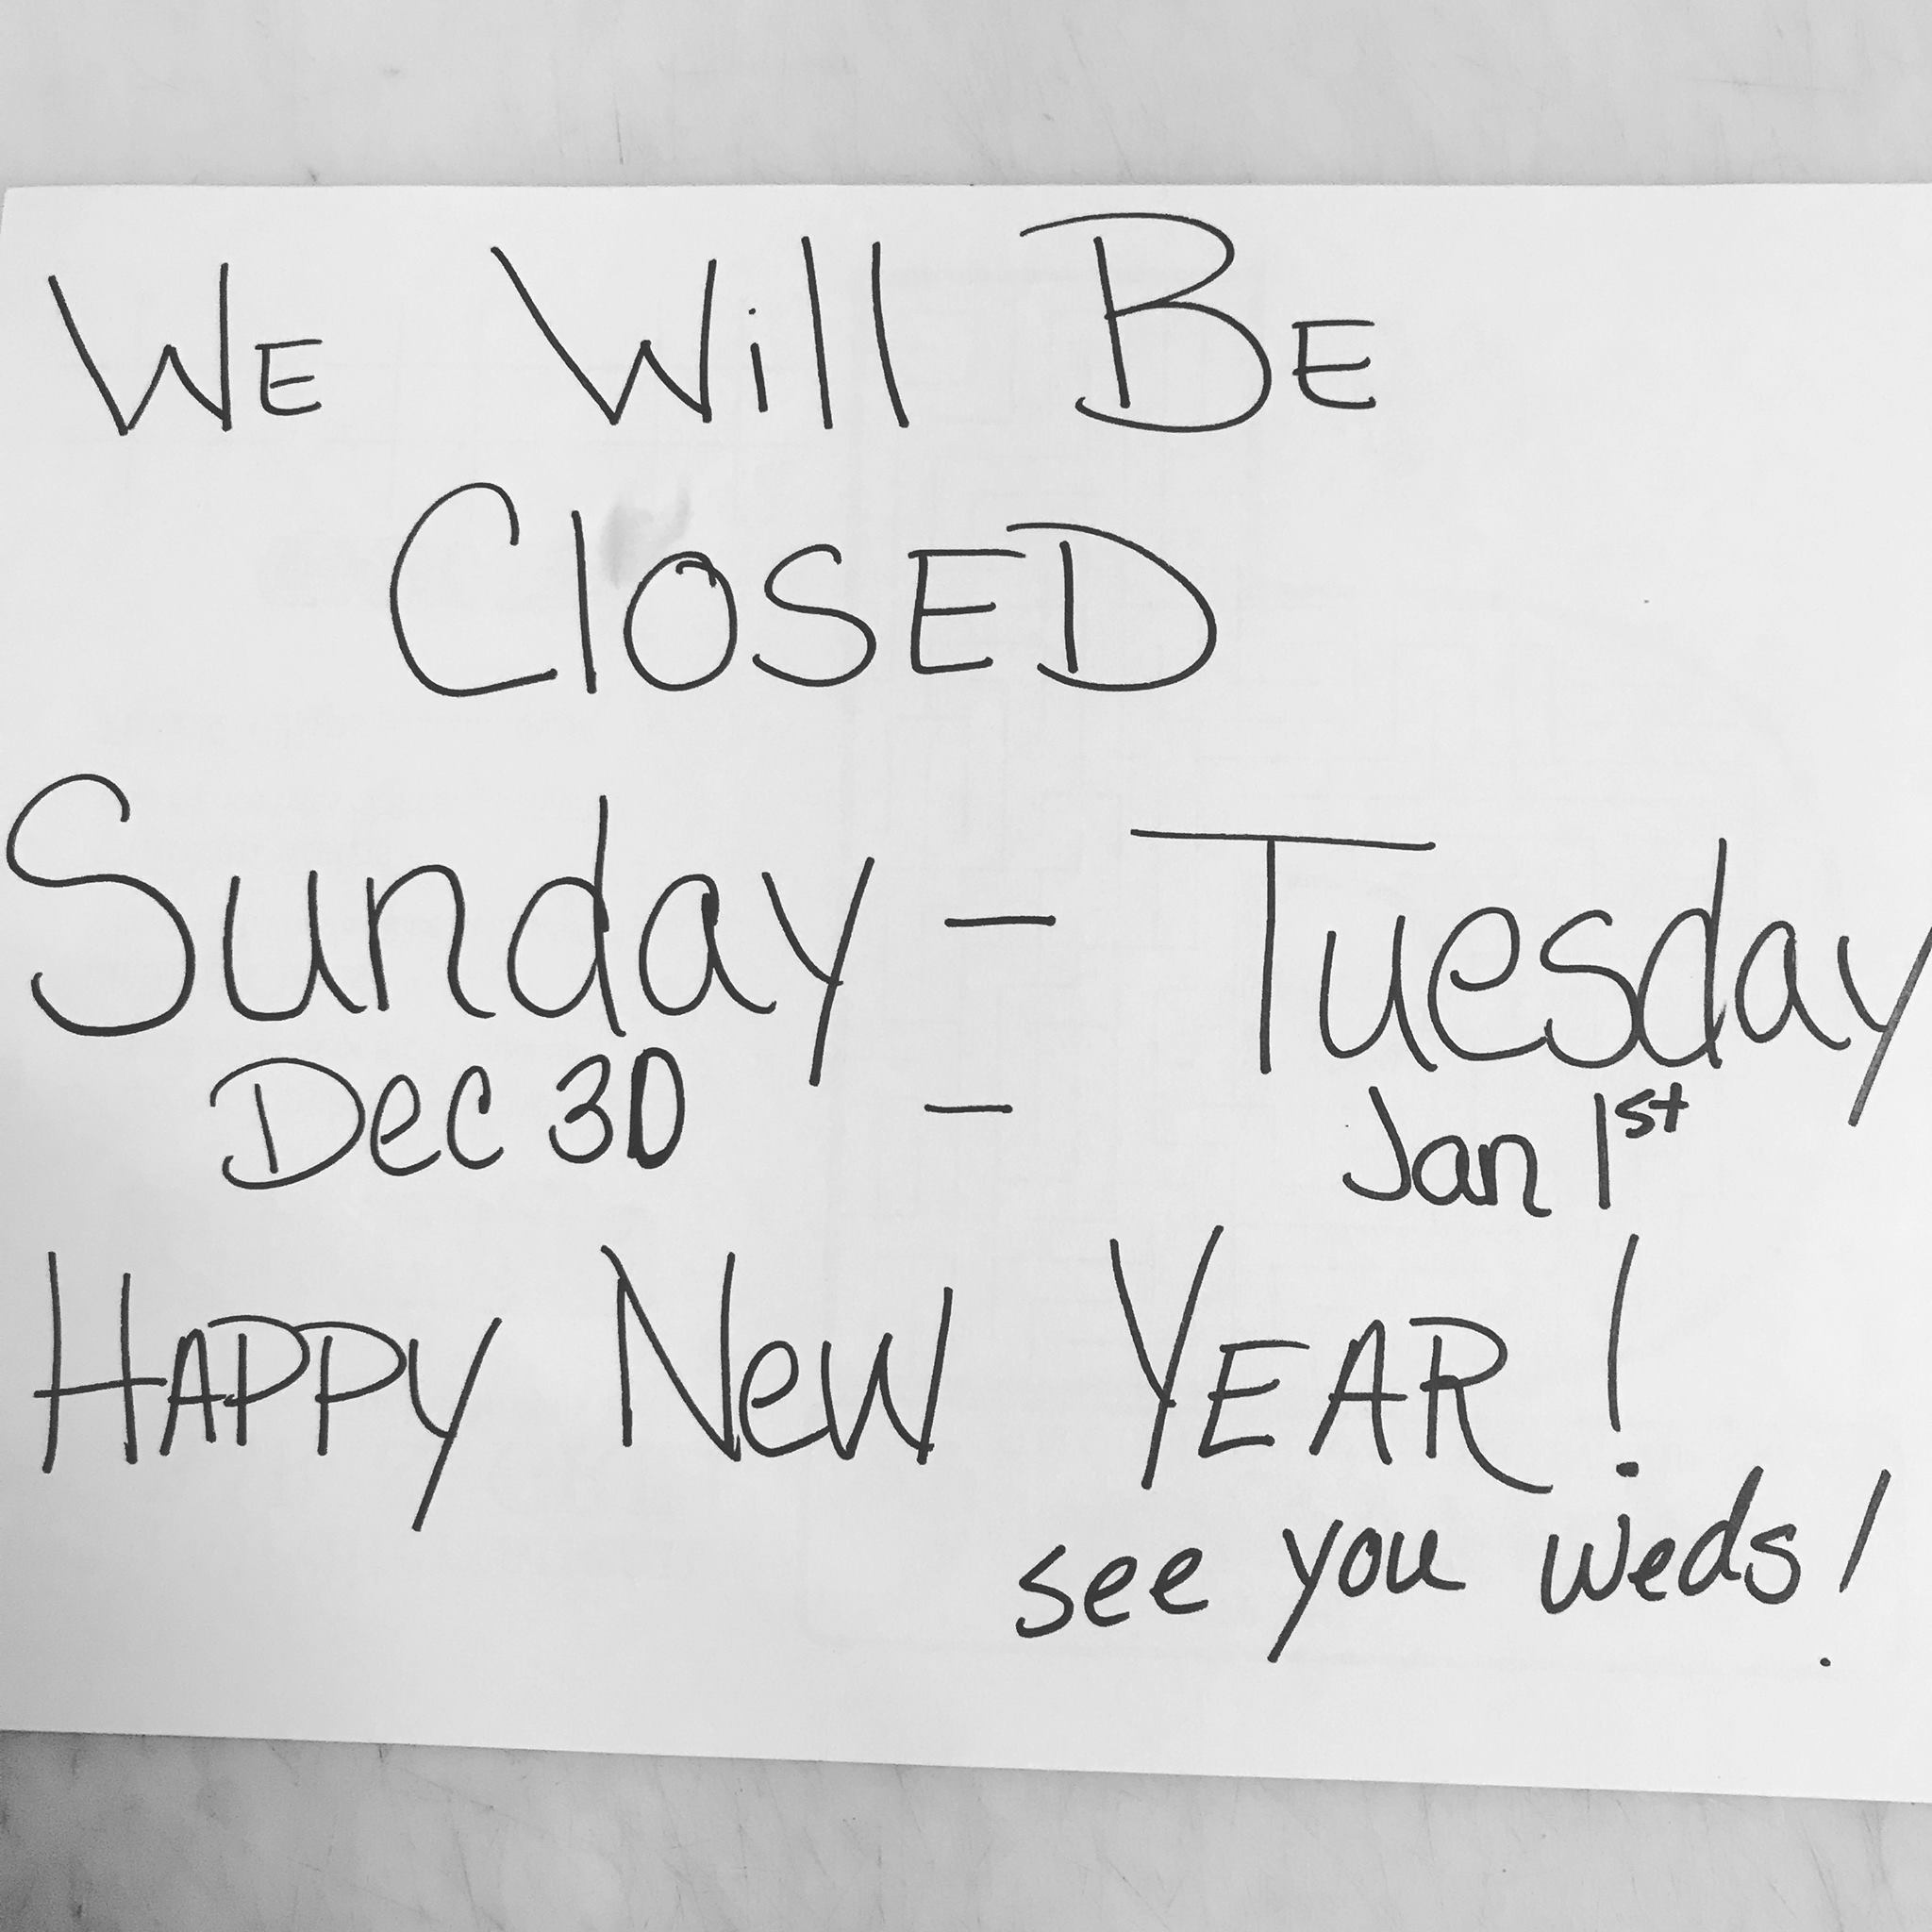 WE Will BE
ClOSED
Sunday - Tuesday
Dec 30 - Jan 1st
HAPPY New YEAR!
see you weds!